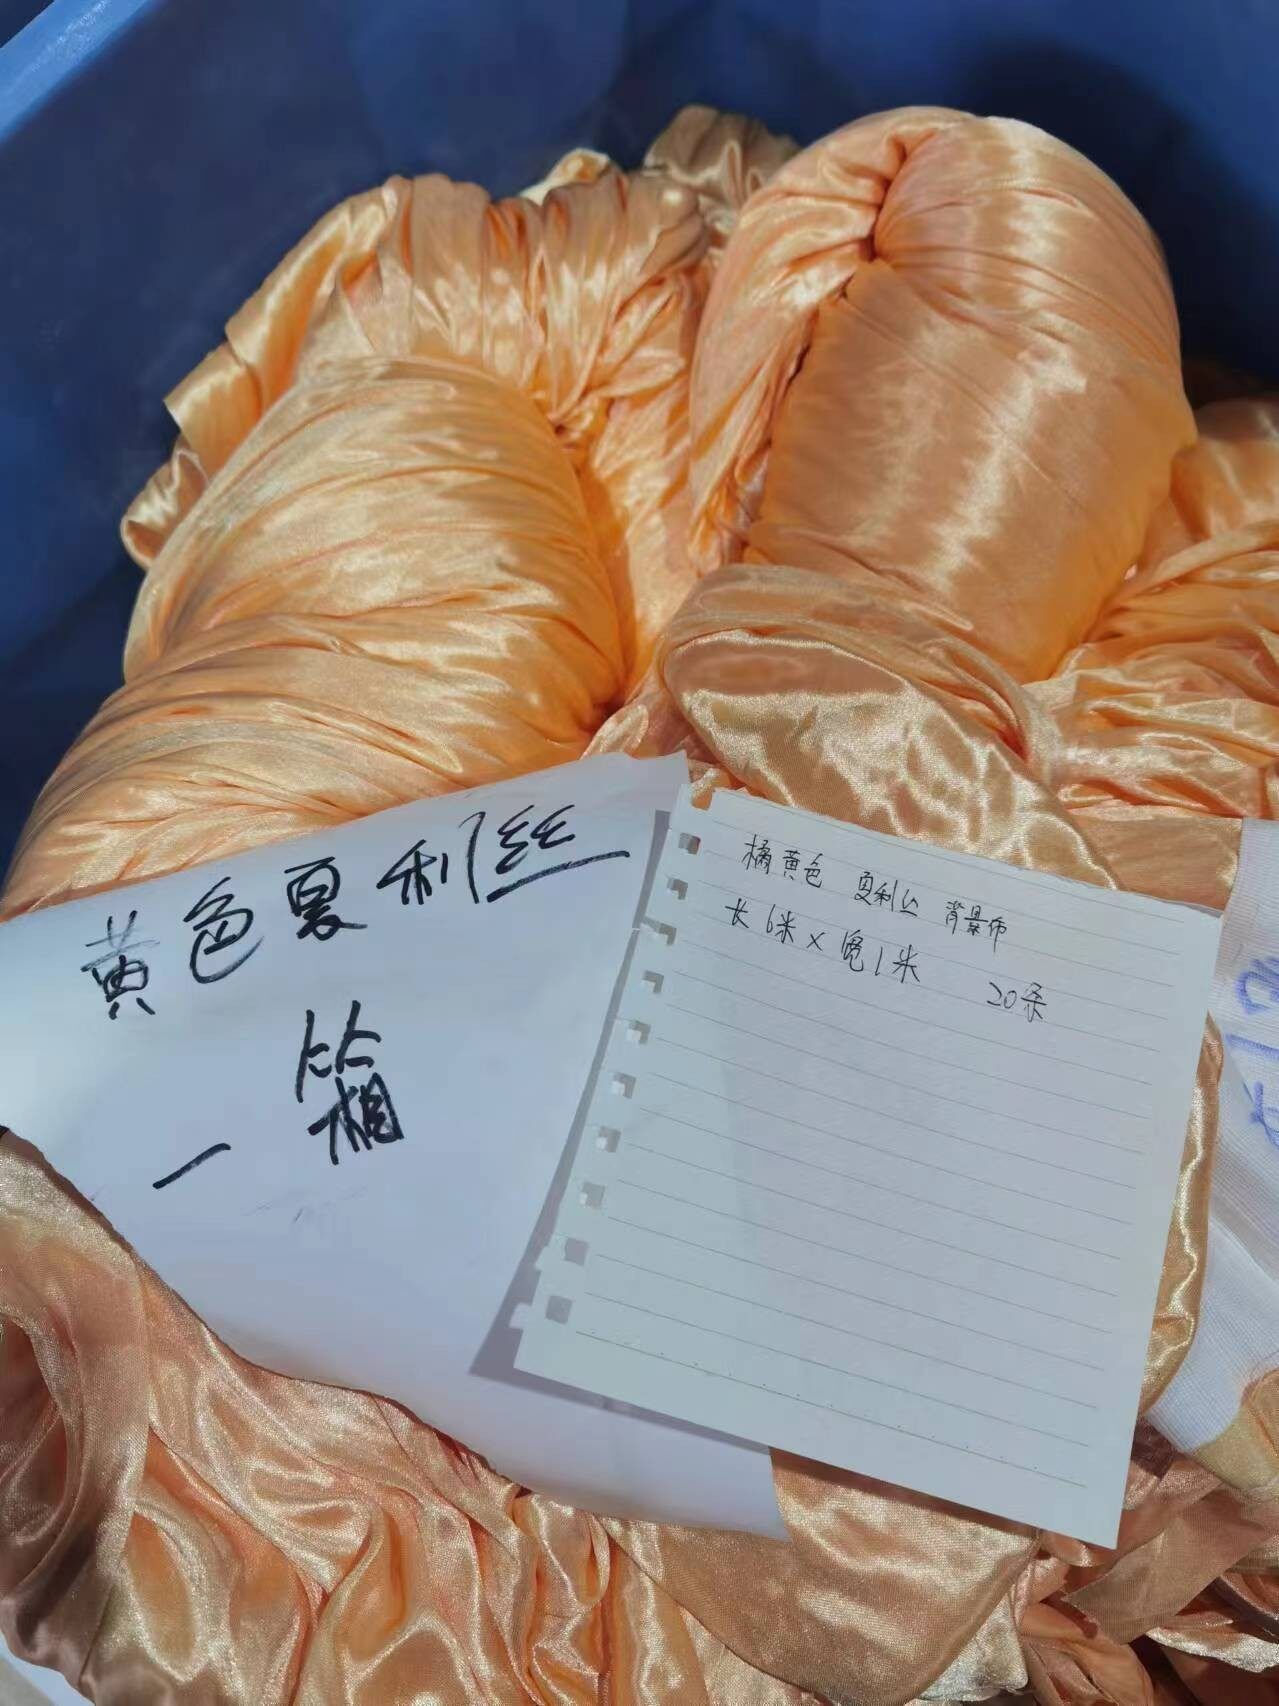 黄色夏利丝
一箱
橘黄色 夏利丝 背景布
长6米×宽1米 20条